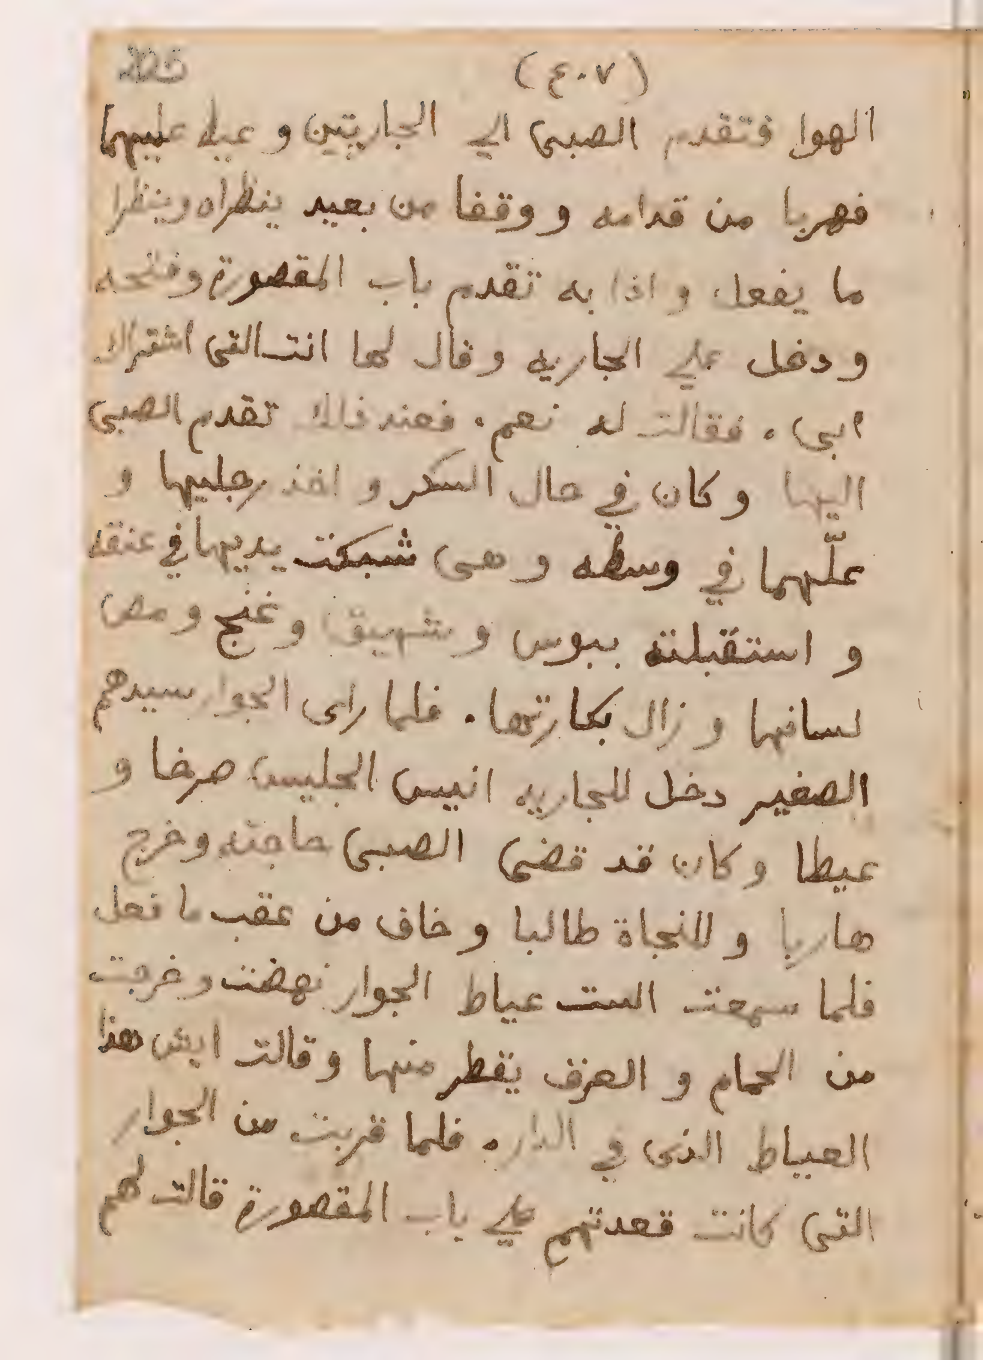 (٤٠٧)
الهوا فتقدم الصبى الي الجاريتين و عيط عليهما
فهربا من قدامه و وقفا من بعيد ينظراه وينظرا
ما يفعل و اذا به تقدم باب المقصورة وفتحه
و دخل علي الجاريه و قال لها انت التى اشتراك
ابى . فقالت له نعم . فعند ذلك تقدم الصبى
اليها و كان في حال السكر و اخذ رجليها و
علّهما في وسطه و هى شبكت يديها في عنقه
و استقبلته ببوس و شهيق و غنج و مص
لسانها و زال بكارتها . فلما راى الجوار سيدهم
الصغير دخل للجاريه انيس الجليس صرخا و
عيطا و كان قد قضى الصبى حاجته و خرج
هاربا و للنجاة طالبا و خاف من عقب ما فعل
فلما سمعت الست عياط الجوار نهضت و خرجت
من الحمام و العرق يقطر منها و قالت ايش هذا
العياط الذى في الدار . فلما قربت من الجوار
التى كانت قعدتهم علي باب المقصورة قالت لهم